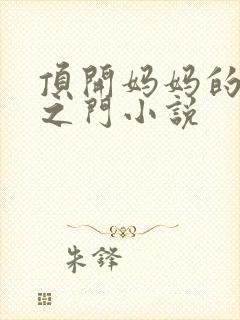 頂開妈妈的
之門小説
朱鋒